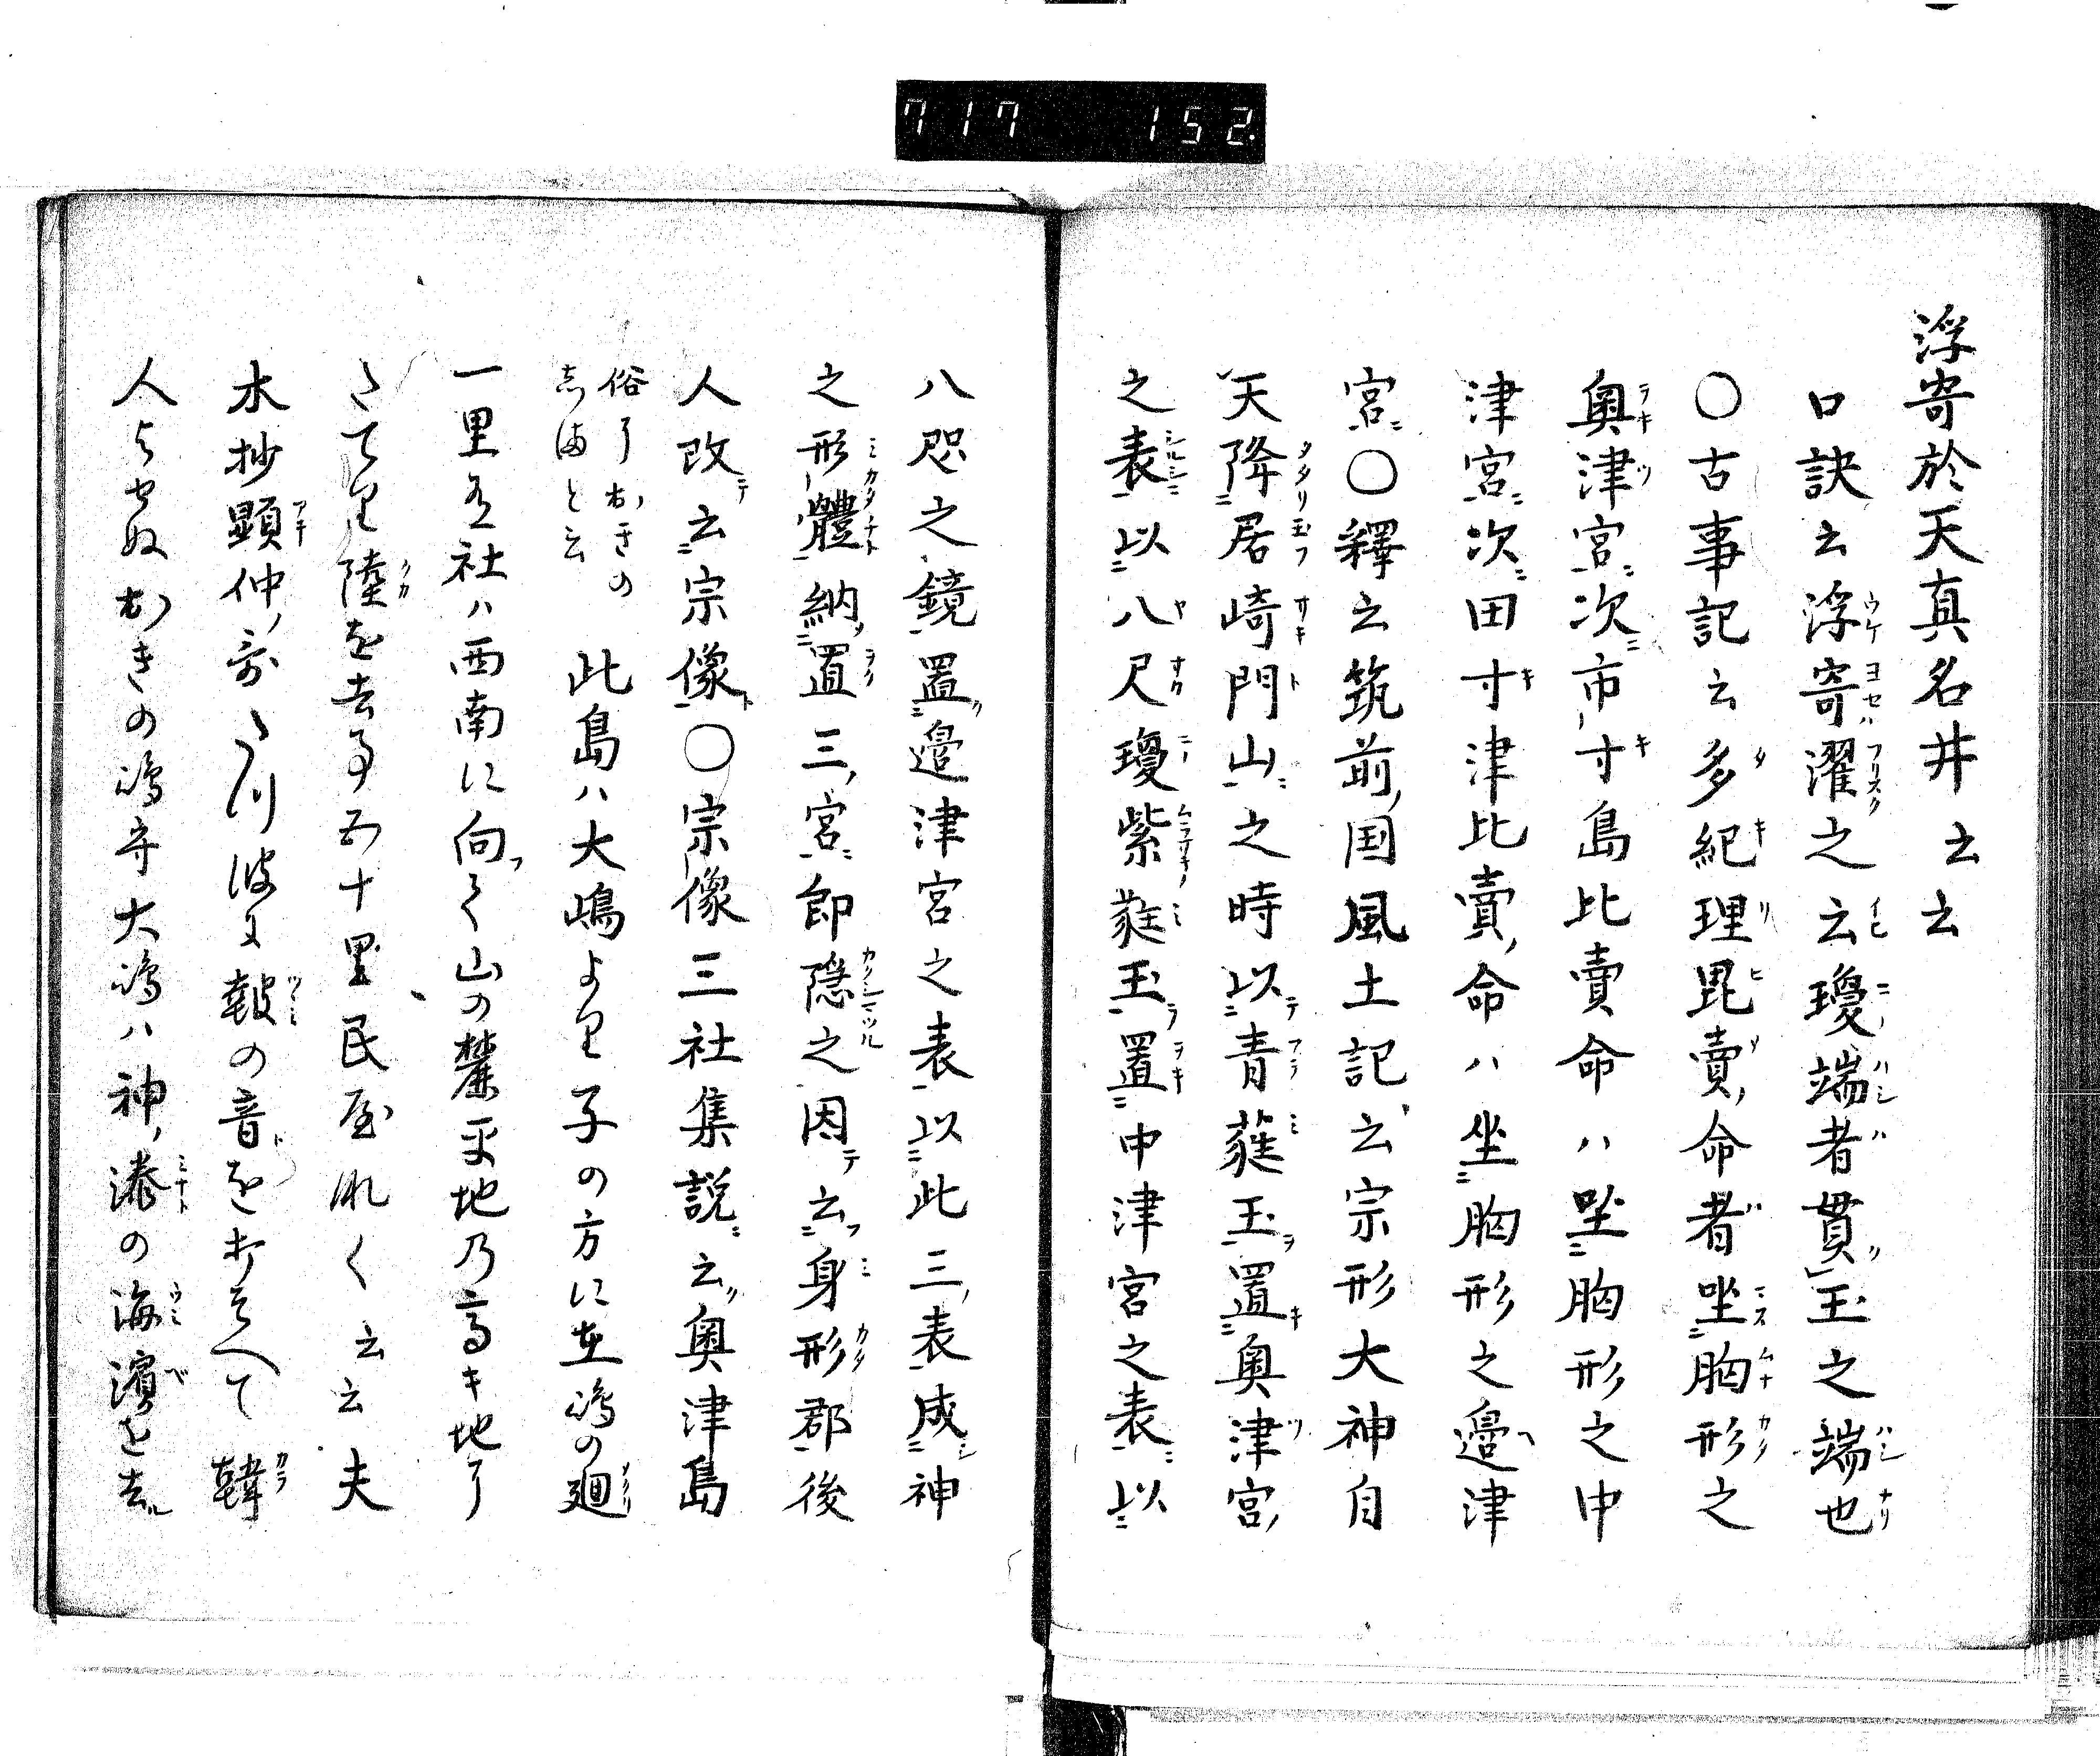 717 152
浮寄於天真名井云云
口訣云浮寄濯之云瓊端者貫玉之端也
〇古事記云多紀理毘賣命者坐胸形之
奥津宮次市寸島比賣命ハ坐胸形之中
津宮次田寸津比賣命ハ坐胸形之邉津
宮〇釋云筑前国風土記云宗形大神自
天降居崎門山之時以青蕤玉置奥津宮
之表以八尺瓊紫蕤玉置中津宮之表以
八咫之鏡置邉津宮之表以此三表成神
之形體納置三宮即隠之因云身形郡後
人改云宗像〇宗像三社集説云奥津島
俗におきの
しまと云
此島ハ大嶋より子の方に在嶋の廻
一里有社ハ西南に向て山の麓平地乃高キ地に
たてり陸を去事五十里民屋なく云云夫
木抄顕仲歌たつ波に皷の音を打そへて韓
人よせぬおきの嶋守大嶋ハ神湊の海濱を去